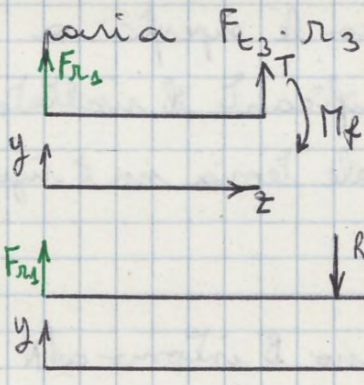 paria Ft3 · r3
Fr1
T
Mf
y
z
Fr1
R
y